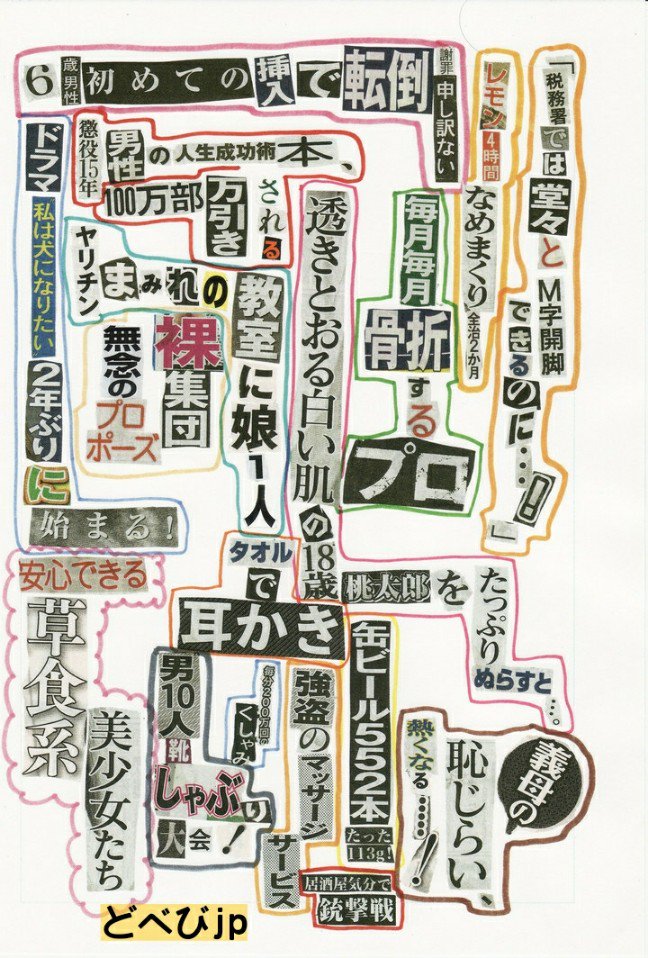 「税務署では堂々とM字開脚
できるのに…!」
レモン4時間
なめまくり全治2か月
謝罪 申し訳ない
6歳男性初めての挿入で転倒
男性の人生成功術本、
100万部万引きされる
懲役15年
毎月毎月
骨折する
プロ
透きとおる白い肌の18歳桃太郎を
たっぷり
ぬらすと…。
ヤリチンまみれの
教室に娘1人
裸集団
無念の
プロポーズ
ドラマ私は犬になりたい2年ぶりに
始まる!
タオルで
耳かき
安心できる
草食系
美少女たち
義母の
恥じらい、
熱くなる……!
缶ビール552本
たった113g!
強盗のマッサージ
サービス
毎分200万回の
くしゃみ
男10人靴
しゃぶり
大会!
居酒屋気分で
銃撃戦
どべびjp